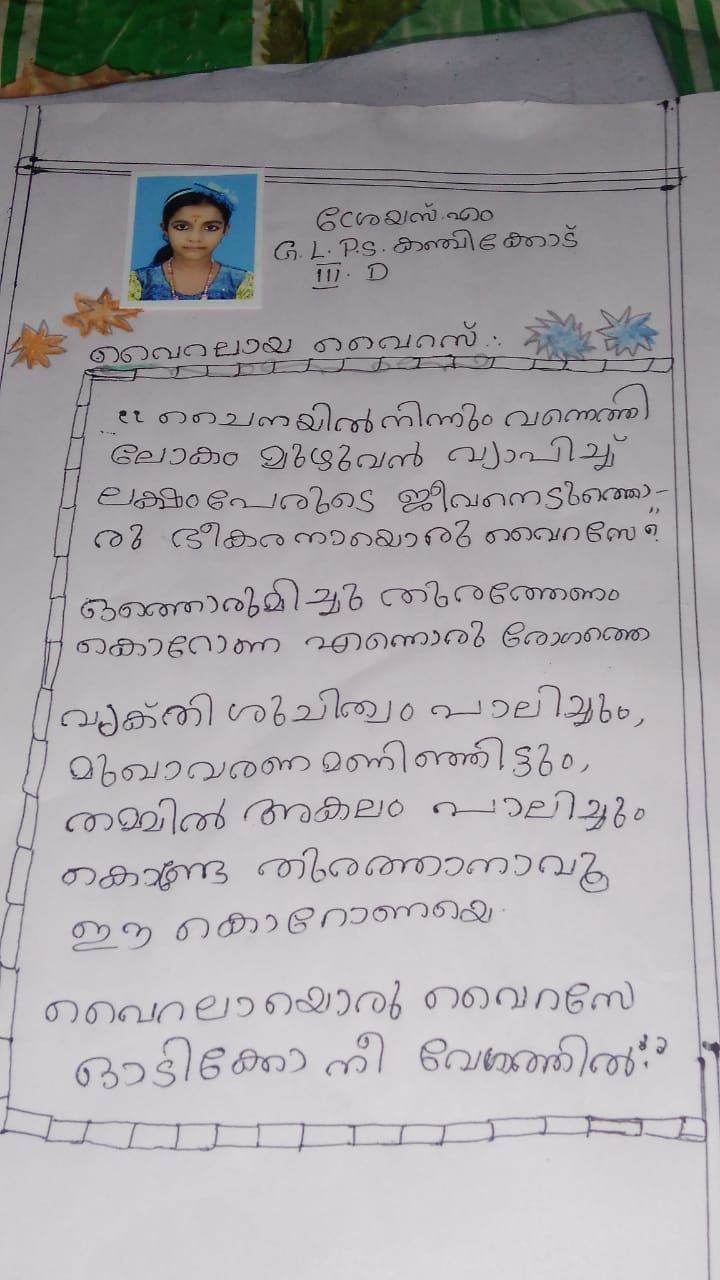 ശ്രേയസ്. എം
G. L. P. S. കഞ്ചിക്കോട്
III. D
വൈറലായ വൈറസ്.
"ചൈനയിൽ നിന്നും വന്നെത്തി
ലോകം മുഴുവൻ വ്യാപിച്ച്
ലക്ഷംപേരുടെ ജീവനെടുത്തൊ-
രു ഭീകരനായൊരു വൈറസേ"
ഒത്തൊരുമിച്ചു തുരത്തേണം
കൊറോണ എന്നൊരു രോഗത്തെ
വ്യക്തി ശുചിത്വം പാലിച്ചും,
മുഖാവരണമണിഞ്ഞിട്ടും,
തമ്മിൽ അകലം പാലിച്ചും
കൊണ്ടേ തുരത്താനാവൂ
ഈ കൊറോണയെ.
വൈറലായൊരു വൈറസേ
ഓടിക്കോ നീ വേഗത്തിൽ!